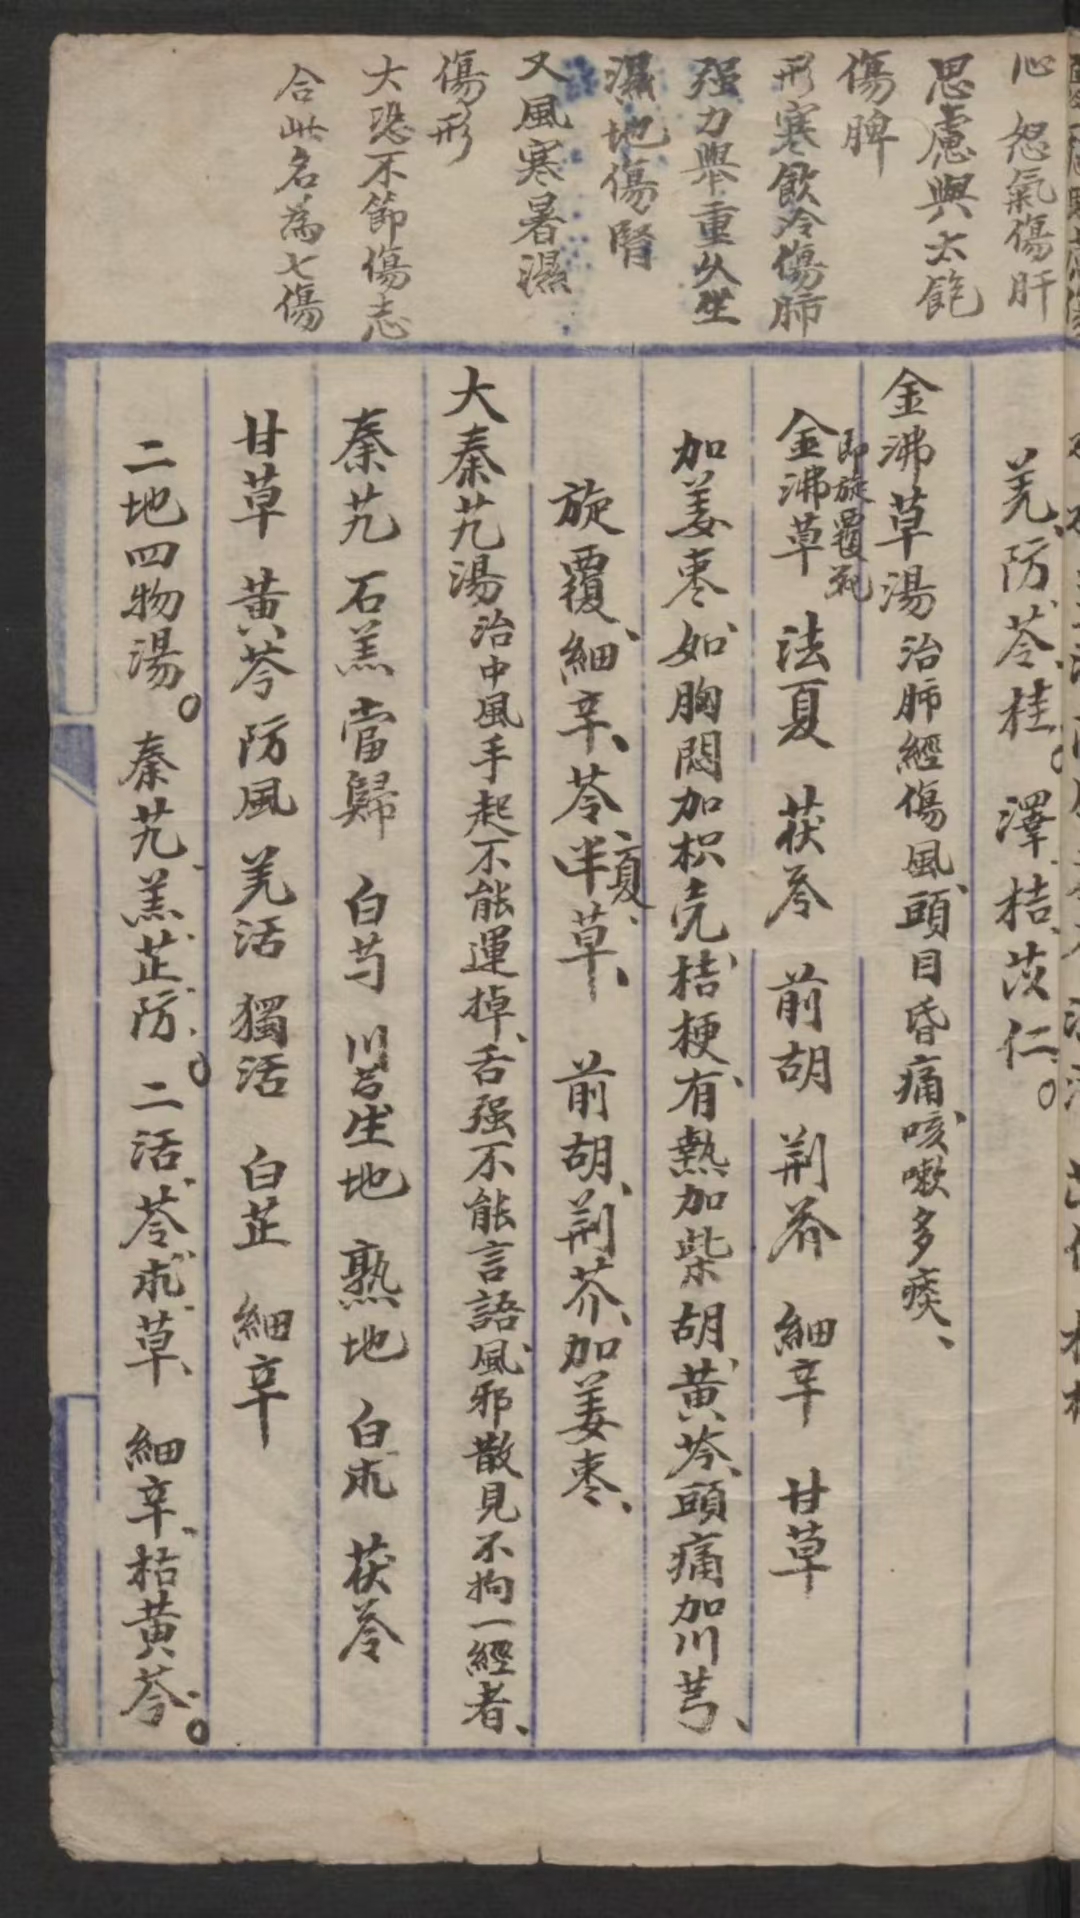 心 怒氣傷肝
思慮與太飽
傷脾
形寒飲冷傷肺
强力舉重久坐
濕地傷腎
又風寒暑濕
傷形
大恐不節傷志
合此名為七傷
羌、防、苓、桂。澤、桔、茨仁。
金沸草湯 治肺經傷風、頭目昏痛、咳嗽多痰、
金沸草 即旋覆花 法夏 茯苓 前胡 荊芥 細辛 甘草
加姜枣、如胸悶加枳壳桔梗、有熱加柴胡、黄芩、頭痛加川芎、
旋覆、細辛、苓半夏、草、 前胡、荊芥、加姜枣、
大秦艽湯 治中風手起不能運掉、舌强不能言語、風邪散見不拘一經者、
秦艽 石羔 當歸 白芍 川芎 生地 熟地 白朮 茯苓
甘草 黄芩 防風 羌活 獨活 白芷 細辛
二地四物湯。秦艽、羔、芷、防、。二活、苓、朮、草、 細辛、枯黄芩、。